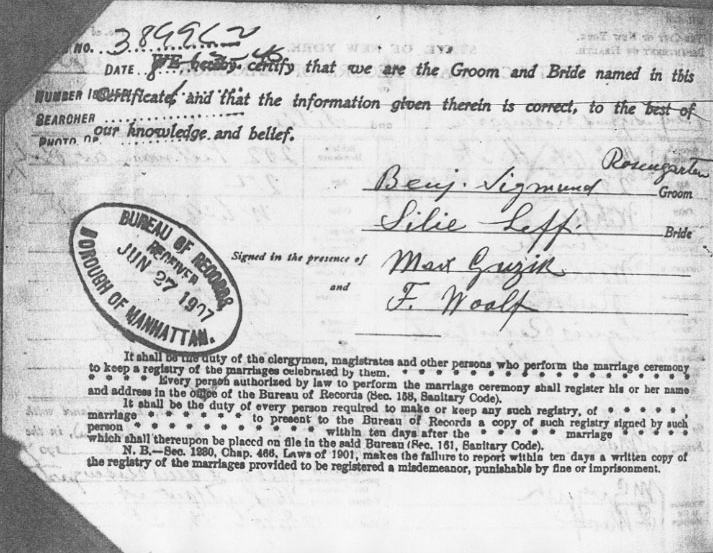 NO. 389962
DATE
WE hereby certify that we are the Groom and Bride named in this
NUMBER
Certificate, and that the information given therein is correct, to the best of
SEARCHER
PHOTO
our knowledge and belief.
Rosengarten
Benj. Sigmund
Groom
Silie Leff.
Bride
Signed in the presence of
Max Guzik
and
F. Woolf
BUREAU OF RECORDS
RECEIVED
JUN 27 1907
BOROUGH OF MANHATTAN.
It shall be the duty of the clergymen, magistrates and other persons who perform the marriage ceremony
to keep a registry of the marriages celebrated by them. * * * * * * * * * * * * * * * * *
* * * * Every person authorized by law to perform the marriage ceremony shall register his or her name
and address in the office of the Bureau of Records (Sec. 158, Sanitary Code).
It shall be the duty of every person required to make or keep any such registry, of * * * * *
marriage * * * * * * to present to the Bureau of Records a copy of such registry signed by such
person * * * * * * * * * * within ten days after the * * * * marriage * * * *
which shall thereupon be placed on file in the said Bureau (Sec. 161, Sanitary Code).
N. B.—Sec. 1280, Chap. 466, Laws of 1901, makes the failure to report within ten days a written copy of
the registry of the marriages provided to be registered a misdemeanor, punishable by fine or imprisonment.